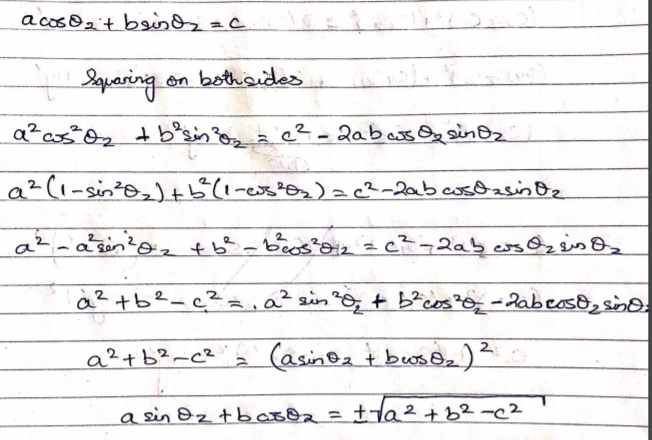 a cosθ₂ + b sinθ₂ = c
Squaring on both sides
a² cos²θ₂ + b² sin²θ₂ = c² - 2ab cosθ₂ sinθ₂
a² (1 - sin²θ₂) + b² (1 - cos²θ₂) = c² - 2ab cosθ₂ sinθ₂
a² - a² sin²θ₂ + b² - b² cos²θ₂ = c² - 2ab cosθ₂ sinθ₂
a² + b² - c² = a² sin²θ₂ + b² cos²θ₂ - 2ab cosθ₂ sinθ
a² + b² - c² = (a sinθ₂ + b cosθ₂)²
a sinθ₂ + b cosθ₂ = ±√a² + b² - c²